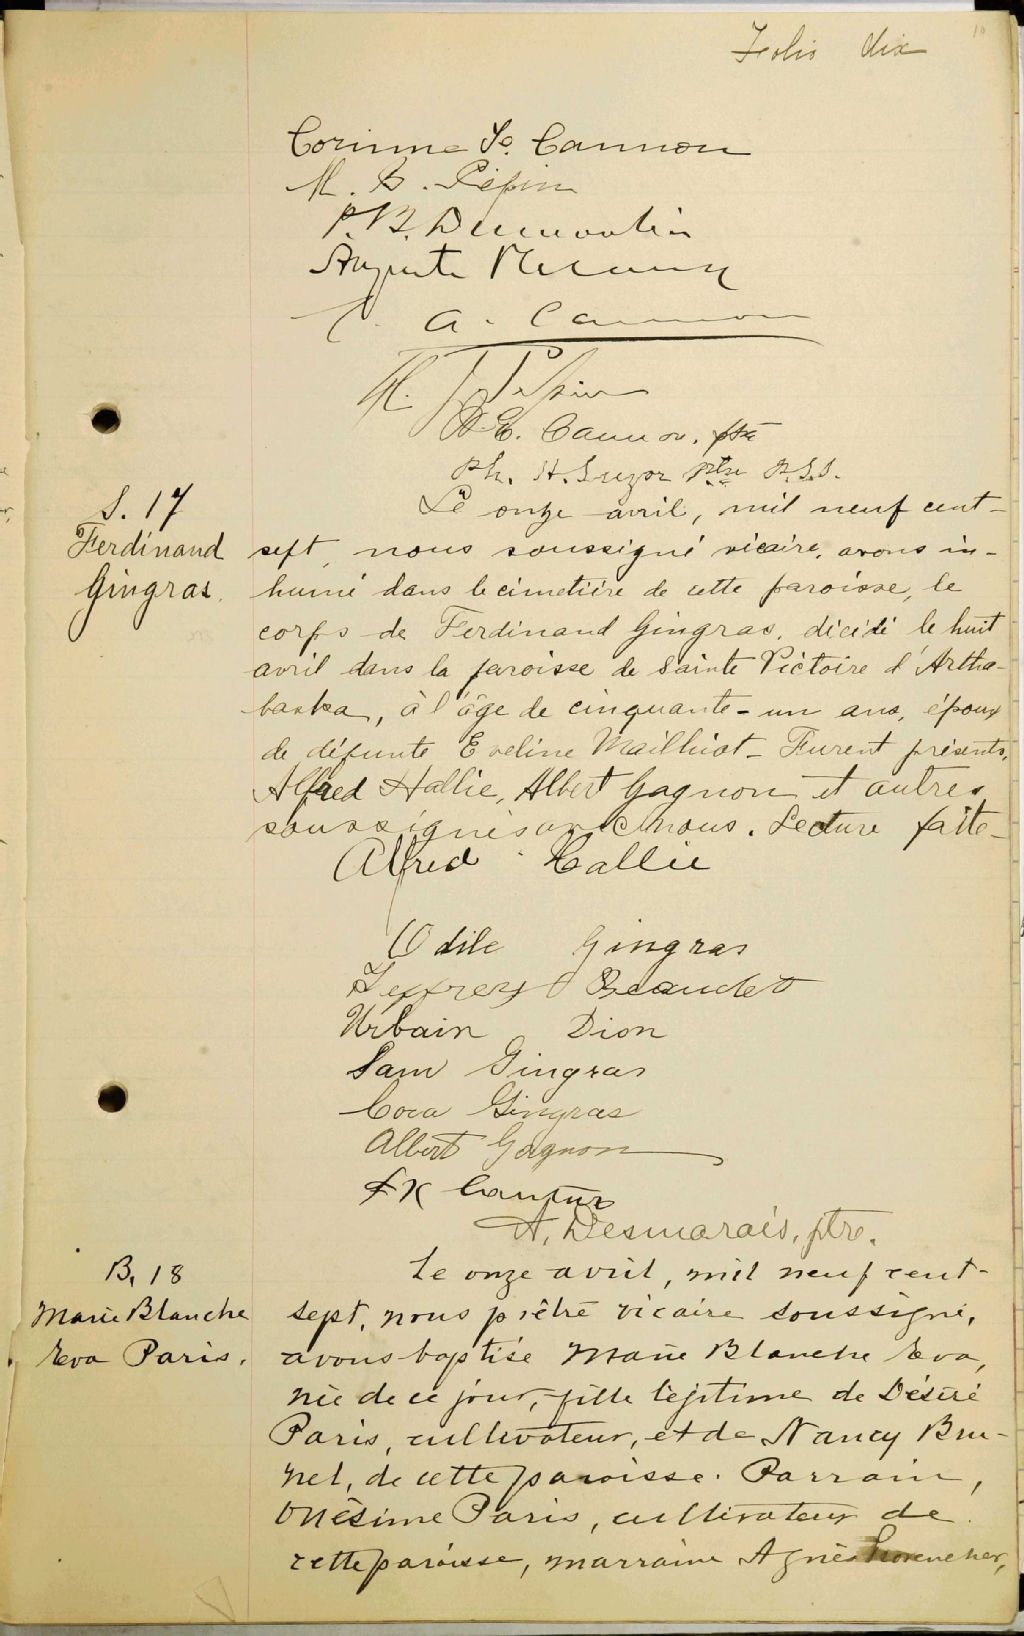 Folio dix
Corinne Cannon
M. B. Pépin
P. B. Dumoulin
Auguste
C. A. Cannon
Pépin
E. Cannon, ptre
Ph. H. Suzor Ptre P.S.S.
S. 17
Ferdinand
Gingras.
Le onze avril, mil neuf cent-
sept, nous soussigné vicaire, avons in-
humé dans le cimetière de cette paroisse, le
corps de Ferdinand Gingras, décédé le huit
avril dans la paroisse de Sainte Victoire d'Artha-
baska, à l'âge de cinquante-un ans, époux
de défunte Eveline Mailhiot_ Furent présents,
Alfred Hallie, Albert Gagnon et autres
soussignés avec nous. Lecture faite_
Alfred Hallie
Odile Gingras
Beaudet
Urbain Dion
Sam Gingras
Cora Gingras
Albert Gagnon
A. Desmarais, ptre.
B. 18
Marie Blanche
Eva Paris.
Le onze avril, mil neuf cent-
sept, nous prêtre vicaire soussigné,
avons baptisé Marie Blanche Eva,
née de ce jour, fille légitime de Désiré
Paris, cultivateur, et de Nancy Bru-
nel, de cette paroisse. Parrain,
Onésime Paris, cultivateur de
cette paroisse, marraine Agnès